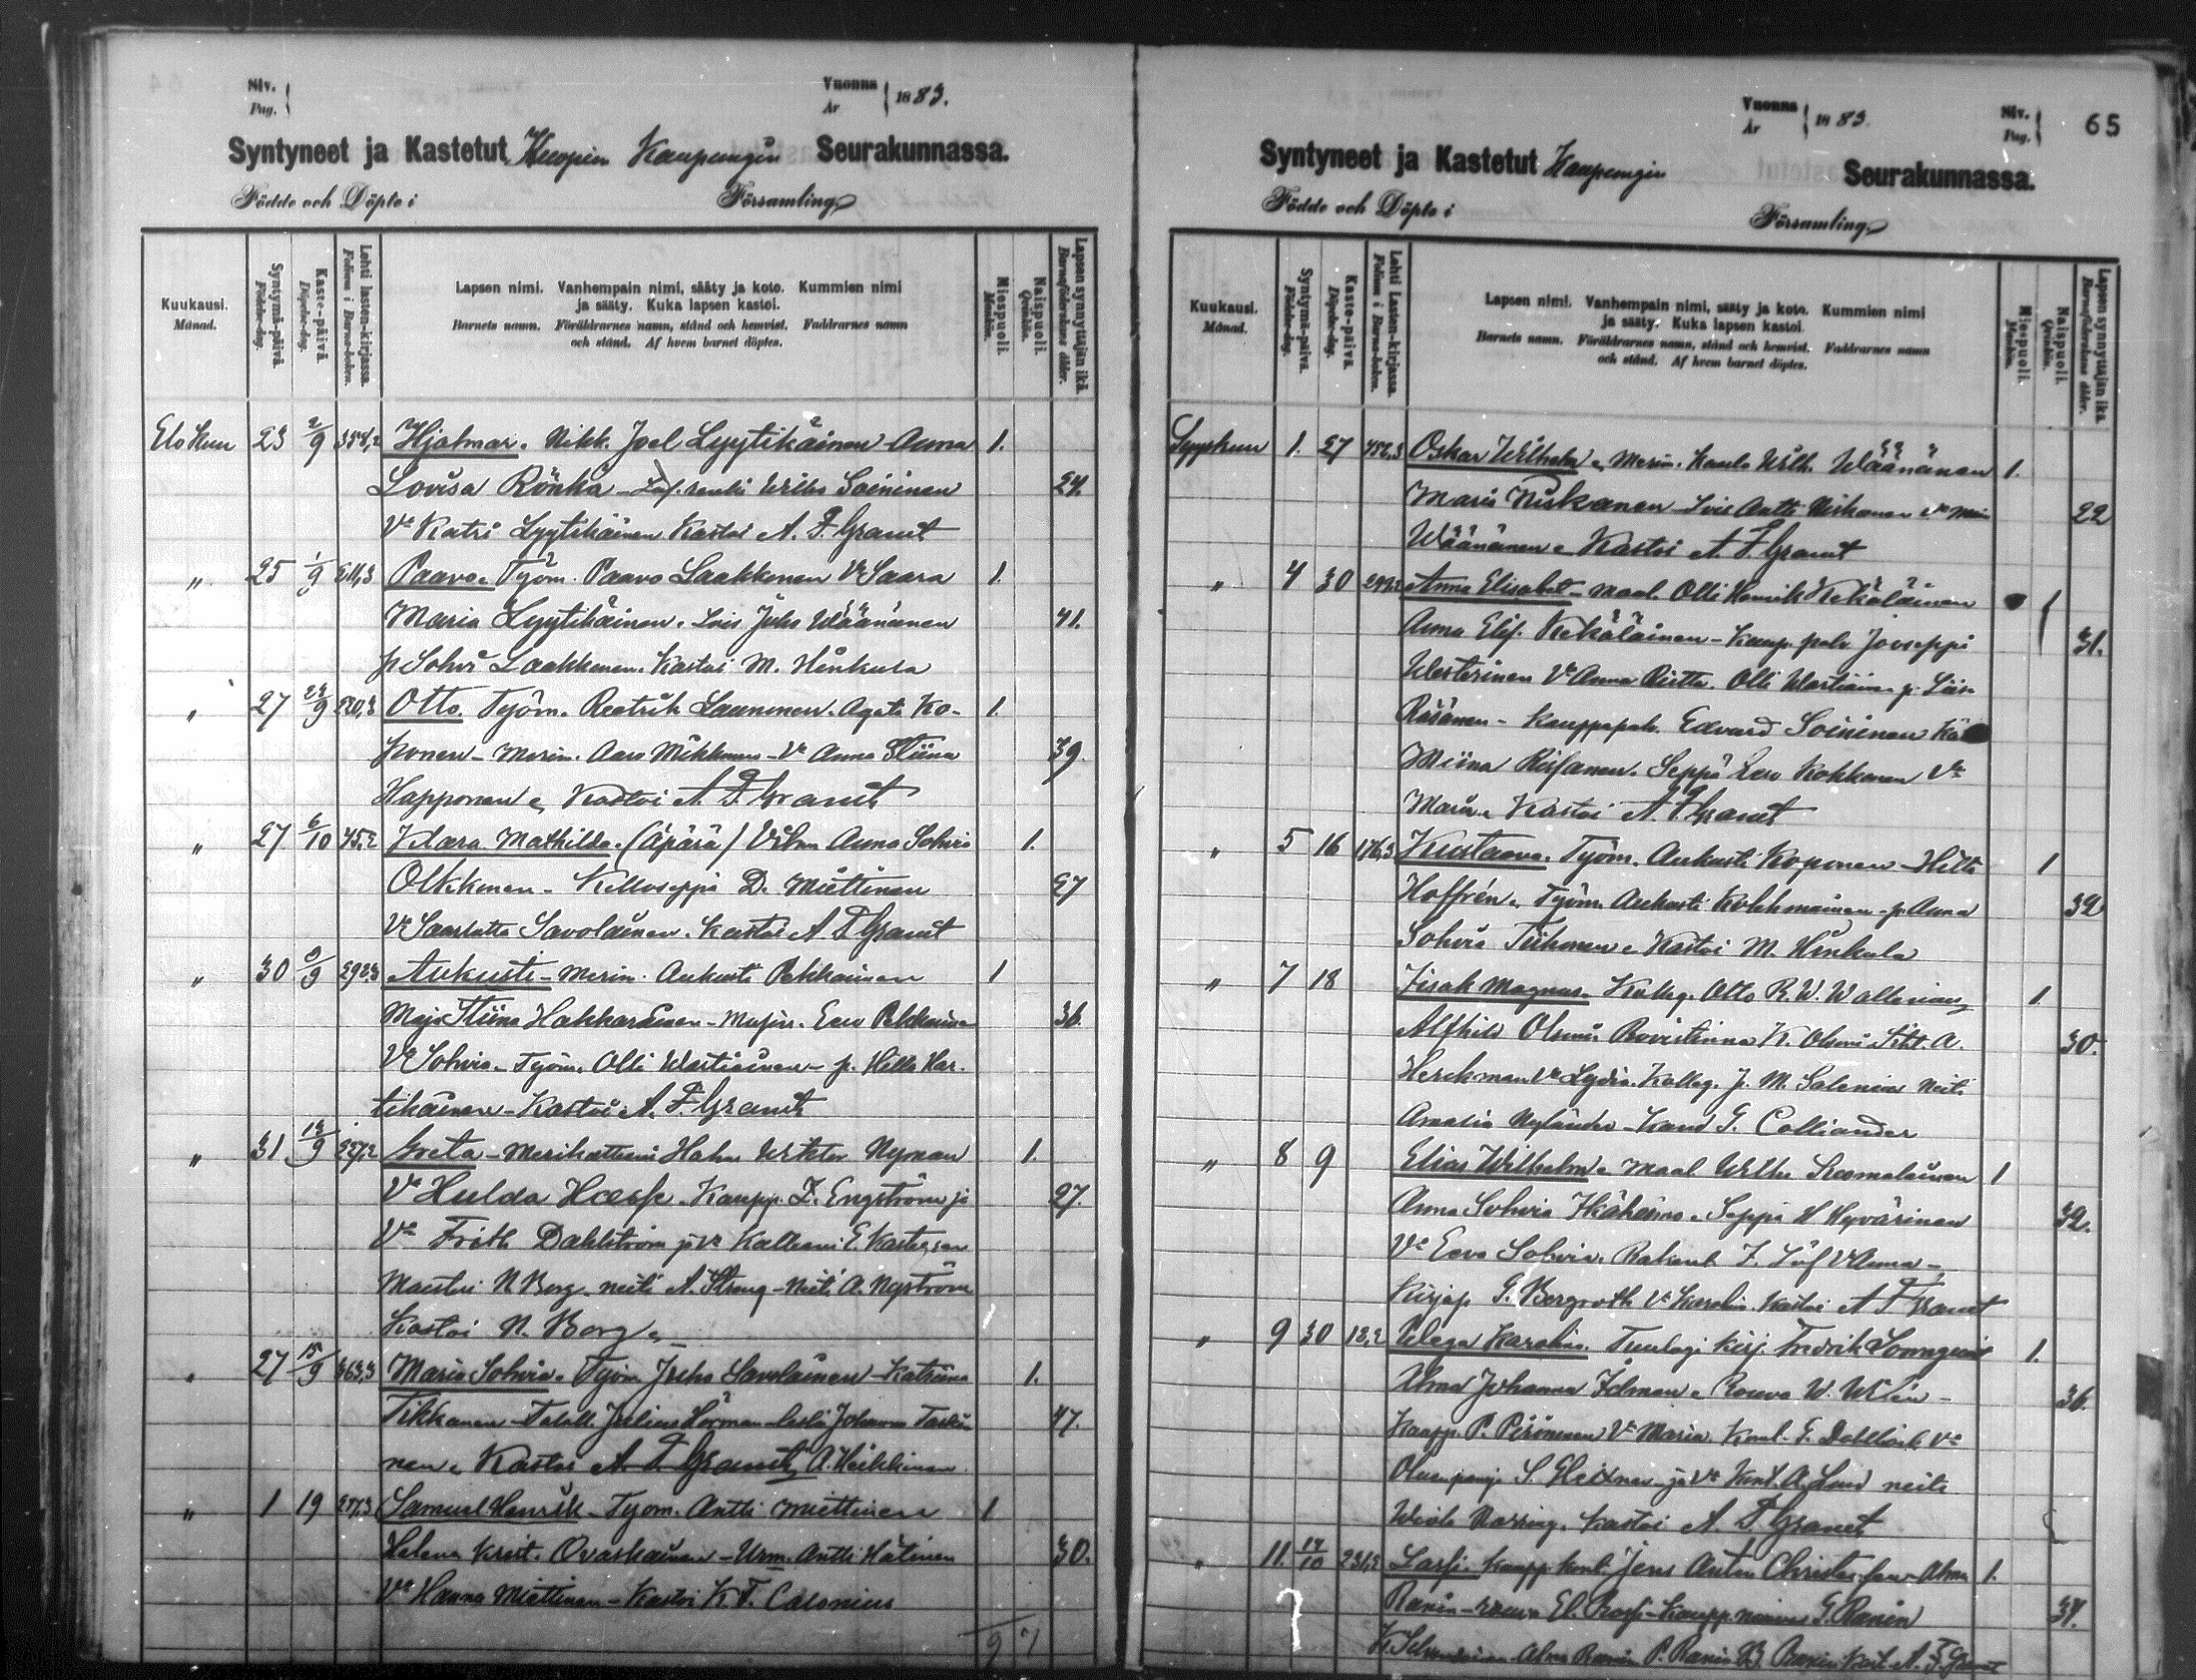 Siv.
Pag.
Vuonna
År
1883.
Syntyneet ja Kastetut Kuopion Kaupungin Seurakunnassa.
Födde och Döpte i Församling
Kuukausi.
Månad.
Syntymä-päivä.
Födelse-dag.
Kaste-päivä.
Döpelse-dag.
Lehti lasten-kirjassa.
Folium i Barna-boken.
Lapsen nimi. Vanhempain nimi, sääty ja koto. Kummien nimi
ja sääty. Kuka lapsen kastoi.
Barnets namn. Föräldrarnes namn, stånd och hemvist. Faddrarnes namn
och stånd. Af hvem barnet döptes.
Miespuoli.
Mankön.
Naispuoli.
Qvinkön.
Lapsen synnyttäjän ikä.
Barnaföderskans ålder.
Elokuu 23 2/9 354,2 Hjalmar. Nikk. Joel Lyytikäinen Anna 1.
Lovisa Rönkä renki Wilho Soininen 24.
Va Katri Lyytikäinen Kastoi A. F. Granit
" 25 1/9 Paavo. Työm. Paavo Laakkonen Va Saara 1.
Maria Lyytikäinen. Lois Juho Wäänänen 41.
p Sohvi Laakkonen. Kastoi M. Hinkula
" 27 23/9 220,3 Otto. Työm. Reetrik Launonen. Agata Ko- 1.
ponen - Merim. Aaro Mikkonen - Va Anna Stiina 39.
Happonen. Kastoi A. F. Granit
" 27 6/10 45,2 Klara Mathilda. (Äpärä) Anna Sohvia 1.
Olkkonen - Kelloseppä D. Miettinen 27
Va Saarlotta Savolainen. Kastoi A. F. Granit
" 30 9/9 292,3 Aukusti - Merim. Aukusti Pekkarinen 1
Maja Stiina Hakkarainen - Eero Pekkarinen 36.
Va Sohvia. Työm. Olli Wartiainen - p. Hilla Har-
tikainen - Kastoi A. F. Granit
" 31 13/9 227,2 Greta - Merikatteini Nyman 1.
Va Hulda Kaupp. Z. Engström ja
27.
Va Frith Dahlström ja va Katteini E.
Maisteri N. Borg. neiti A. Streng - Neiti A. Nyström
Kastoi N. Borg.
" 27 15/9 363,3 Maria Sohvia. Työm Juho Savolainen - Katriina 1.
Tikkanen - Julius Hörman - leski Johanna Taski- 47.
nen. Kastoi A. F. Granit A. Heikkinen
" 1 19 Samuel Henrik - Työm. Antti Miettinen 1
Helena Krist. Ovaskainen - Urm. Antti Hätinen 30.
Va Hanna Miettinen - Kastoi K. F. Calonius
9 7
Vuonna
År
1883.
Siv.
Pag.
65
Syntyneet ja Kastetut Kaupungin Seurakunnassa.
Födde och Döpte i Församling
Kuukausi.
Månad.
Syntymä-päivä.
Födelse-dag.
Kaste-päivä.
Döpelse-dag.
Lehti Lasten-kirjassa.
Folium i Barna-boken.
Lapsen nimi. Vanhempain nimi, sääty ja koto. Kummien nimi
ja sääty. Kuka lapsen kastoi.
Barnets namn. Föräldrarnes namn, stånd och hemvist. Faddrarnes namn
och stånd. Af hvem barnet döptes.
Miespuoli.
Mankön.
Naispuoli.
Qvinkön.
Lapsen synnyttäjän ikä.
Barnaföderskans ålder.
Syyskuu 1. 27 Oskar Wilhelm. Merim. Kaarlo Wilh. Wäänänen 1.
Maria Niskanen Lois Antti Niskanen 22
Wäänänen. Kastoi A. F. Granit
" 4 30 Anna Elisabet - Maal. Olli Henrik Kekäläinen 1
Anna Elis. Kekäläinen - Kaup. palv Jooseppi 31.
Westerinen Va Anna Riitta. Olli Wartiain. p. Liisa
Räsänen - Kauppapalv. Edvard Soininen
Miina Seppä Eero Kokkonen Va
Maria. Kastoi A. F. Granit
" 5 16 176,3 Kustaava. Työm. Aukusti Koponen - Hilta 1
Hoffrén. Työm. Aukusti Kokkonainen - p. Anna 32
Sohvia Tiihonen. Kastoi M. Hinkula
" 7 18 Fisak Magnus. Kolleg. Otto R. W. Wallenius 1.
Alfhild Olsoni Rovistinna K. Olsoni A. 30.
Herckman va Lydia. Kolleg. J. M. Salenius Neiti
Amalia Nyländer - Kand G. Colliander
" 8 9 Elias Wilhelm. Maal. Wilh. Kosmalainen 1
Anna Sohvia Ikäheimo. Seppä H Hyvärinen 32.
Va Eeva Sohvia. Rakent. F. Löf Va Anna -
Kirjap. G. Bergroth Va Karolin. Kastoi A. F. Granit
" 9 30 18,2 Karolin. Tuulagi kirj. Fredrik 1.
Alma Johanna Idman. Rouva W. Wilén - 36.
Kaupp. P. Piironen Va Maria. G. Dahlbäck Va
S. ja Va A. Lund neiti
kastoi A. F. Granit
" 11. 14/10 231,2 Lassi. Kaupp. Jens Anton Christensen - Alma 1.
Ranin - rouva El. Kaupp. G. Ranin 34.
Alma Ranin P. Ranin B. Ranin Kast. A. F. Granit